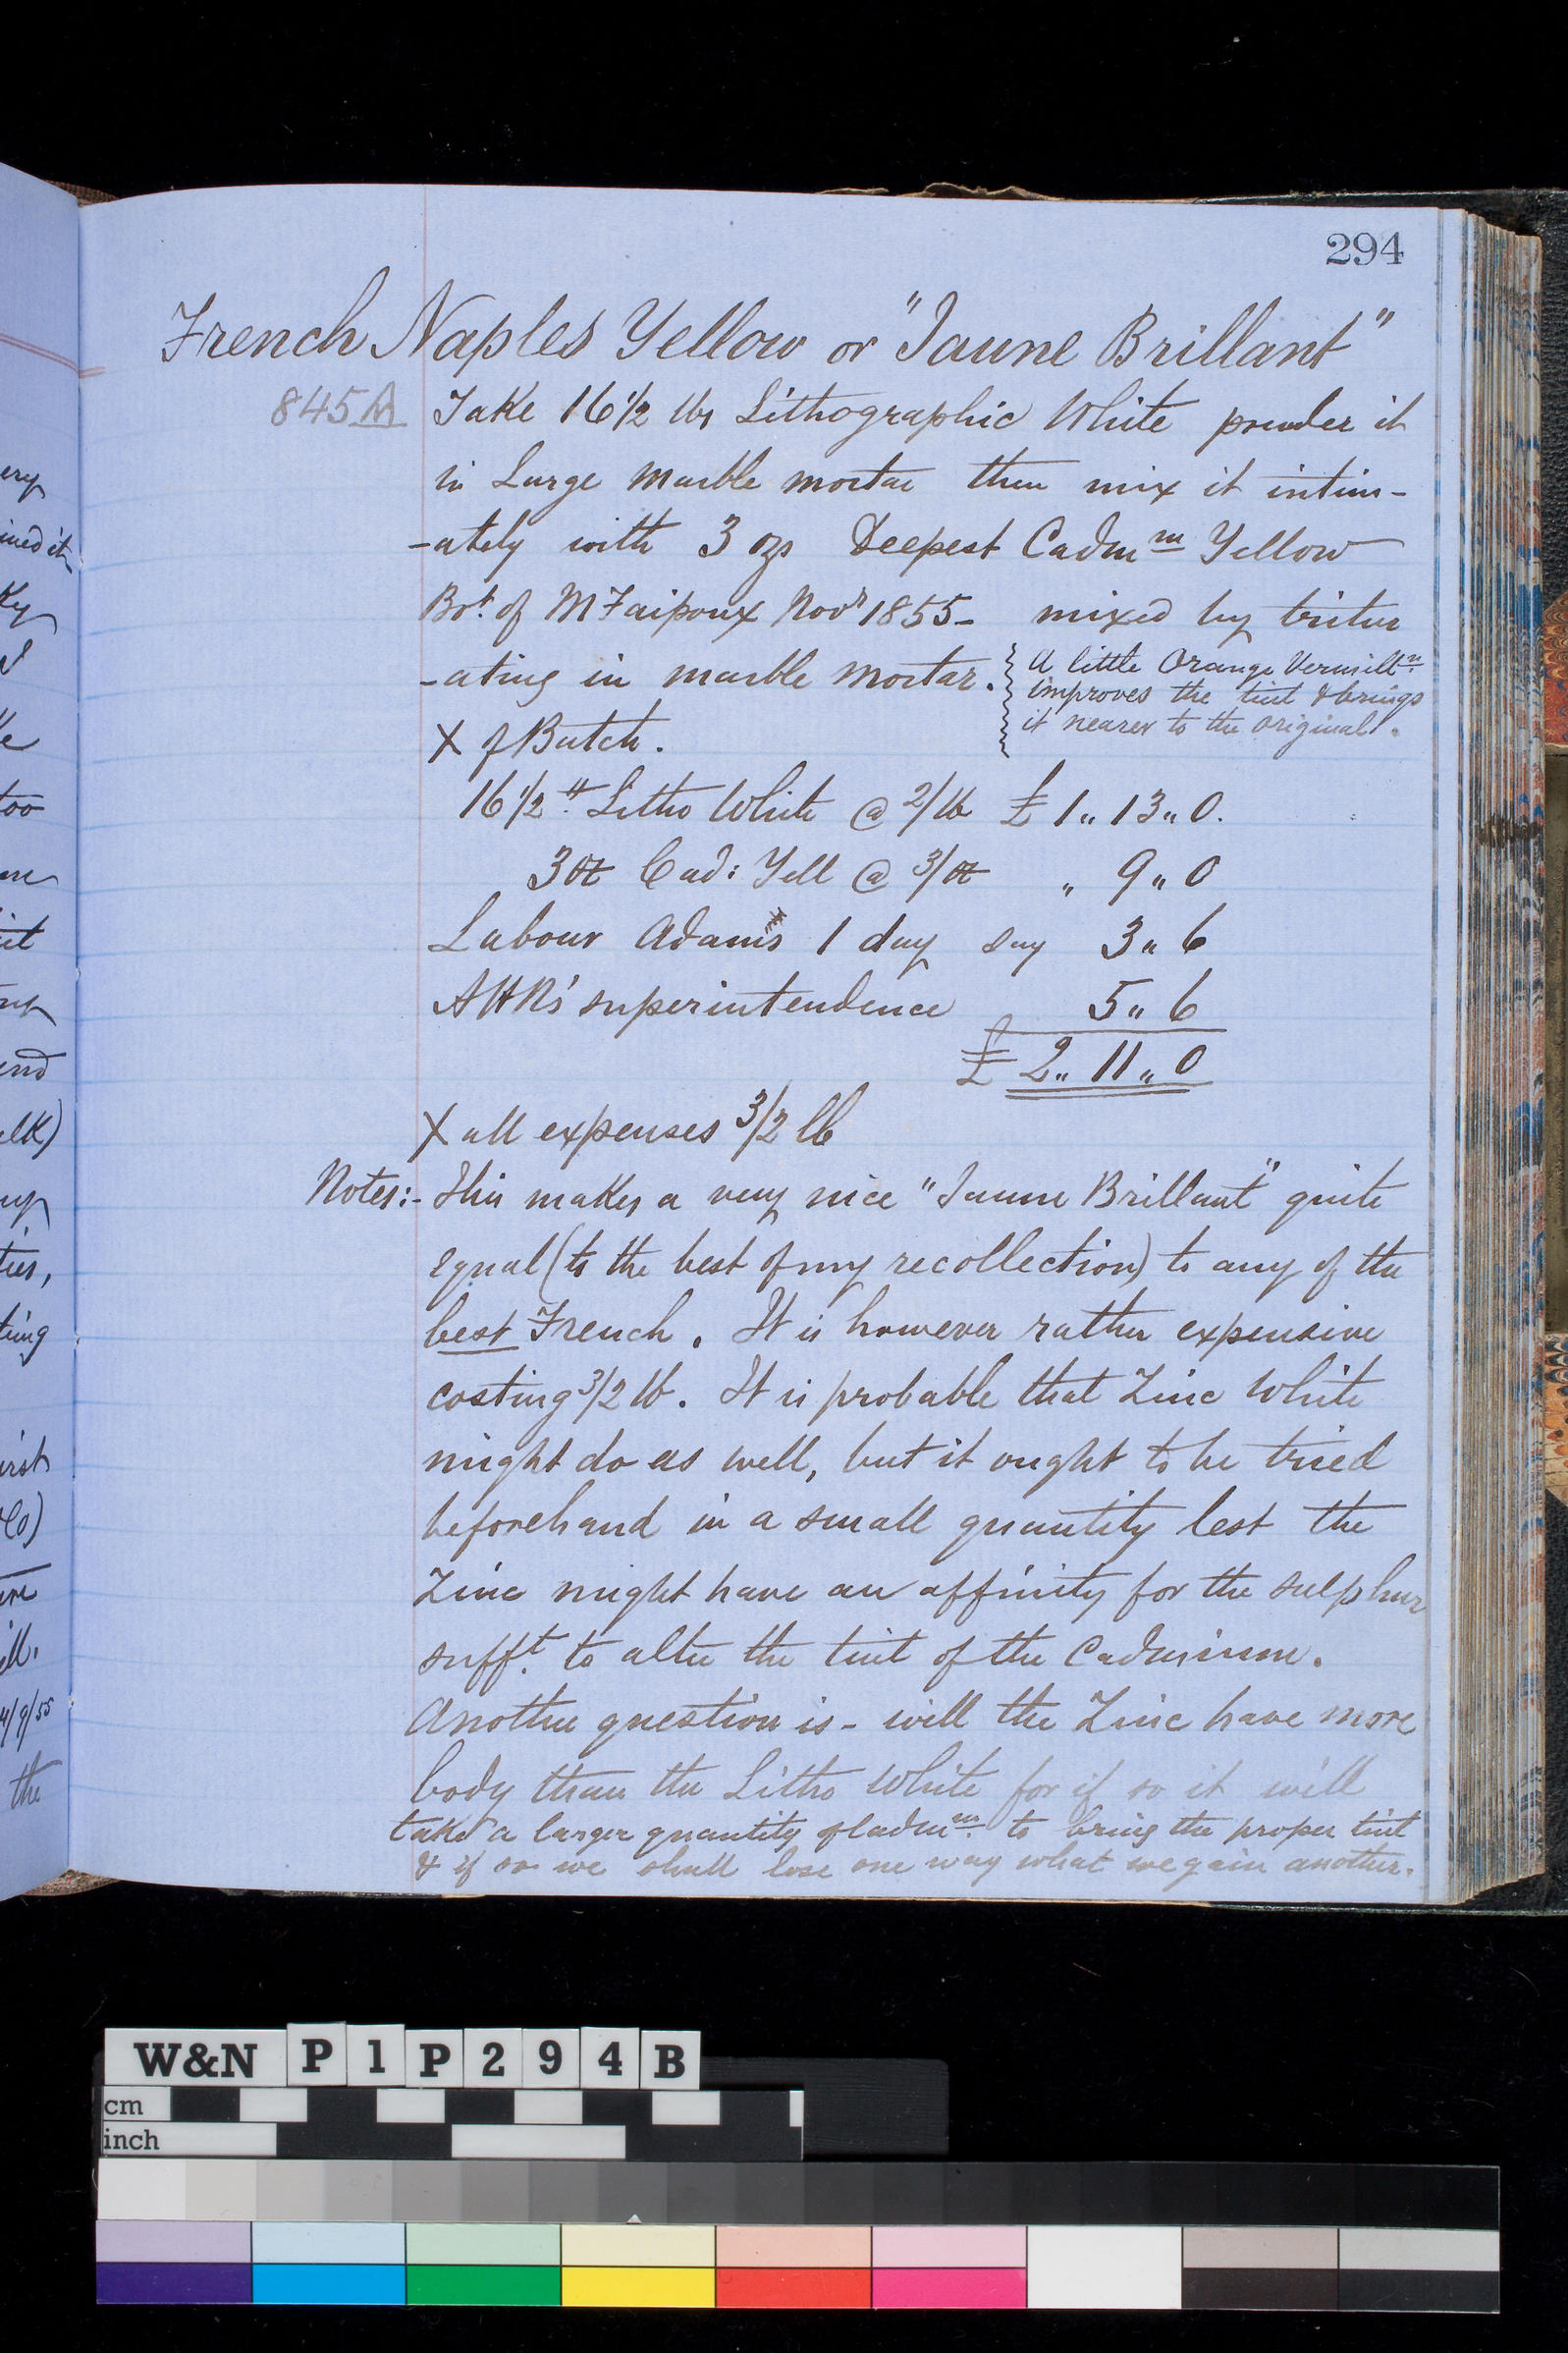 294
French Naples Yellow or "Jaune Brillant"
845A
Take 16½ lbs Lithographic White powder it
in Large marble mortar then mix it intim-
-ately with 3 ozs Deepest Cadm^m Yellow
Bot. of M Nov^r 1855 - mixed by tritur
-ating in marble mortar.
A little Orange Vermill^n.
improves the tint & brings
it nearer to the original.
X of Batch.
16½ # Litho White @ 2/ lb £ 1 " 13 " 0.
3 oz Cad: Yell @ 3/ oz " 9 " 0
Labour Adams 1 day say 3 " 6
AHR's superintendence 5 " 6
£ 2 " 11 " 0
X all expenses 3/2 lb
Notes:- This makes a very nice "Jaune Brillant" quite
equal (to the best of my recollection) to any of the
best French. It is however rather expensive
costing 3/2 lb. It is probable that Zinc White
might do as well, but it ought to be tried
beforehand in a small quantity lest the
Zinc might have an affinity for the sulphur
suff^t. to alter the tint of the Cadmium.
Another question is - will the Zinc have more
body than the Litho White for if so it will
take a larger quantity of Cadm^m. to bring the proper tint
& if so we shall lose one way what we gain another.
ined it
Ke
too
it
end
elk)
up
ties,
ting
irst
&Co)
ill.
4/9/55
the
W&N P 1 P 2 9 4 B
cm
inch